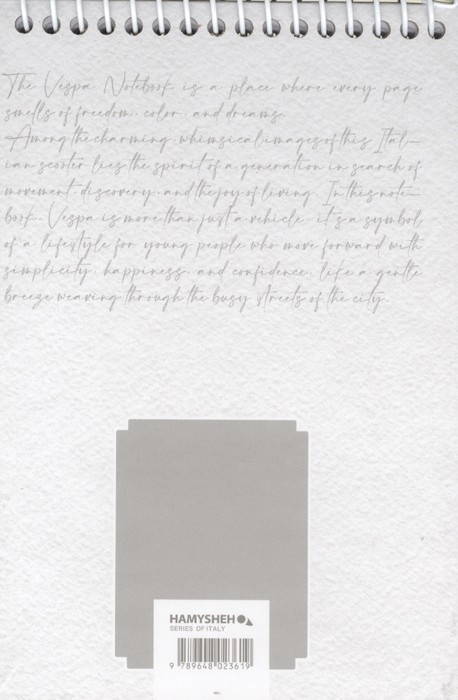 The Vespa Notebook is a place where every page
smells of freedom, color, and dreams.
Among the charming, whimsical images of this Ital-
ian scooter lies the spirit of a generation in search of
movement, discovery, and the joy of living. In this note-
book, Vespa is more than just a vehicle; it's a symbol
of a lifestyle for young people who move forward with
simplicity, happiness, and confidence, like a gentle
breeze weaving through the busy streets of the city.
HAMYSHEH
SERIES OF ITALY
9 789648 023619